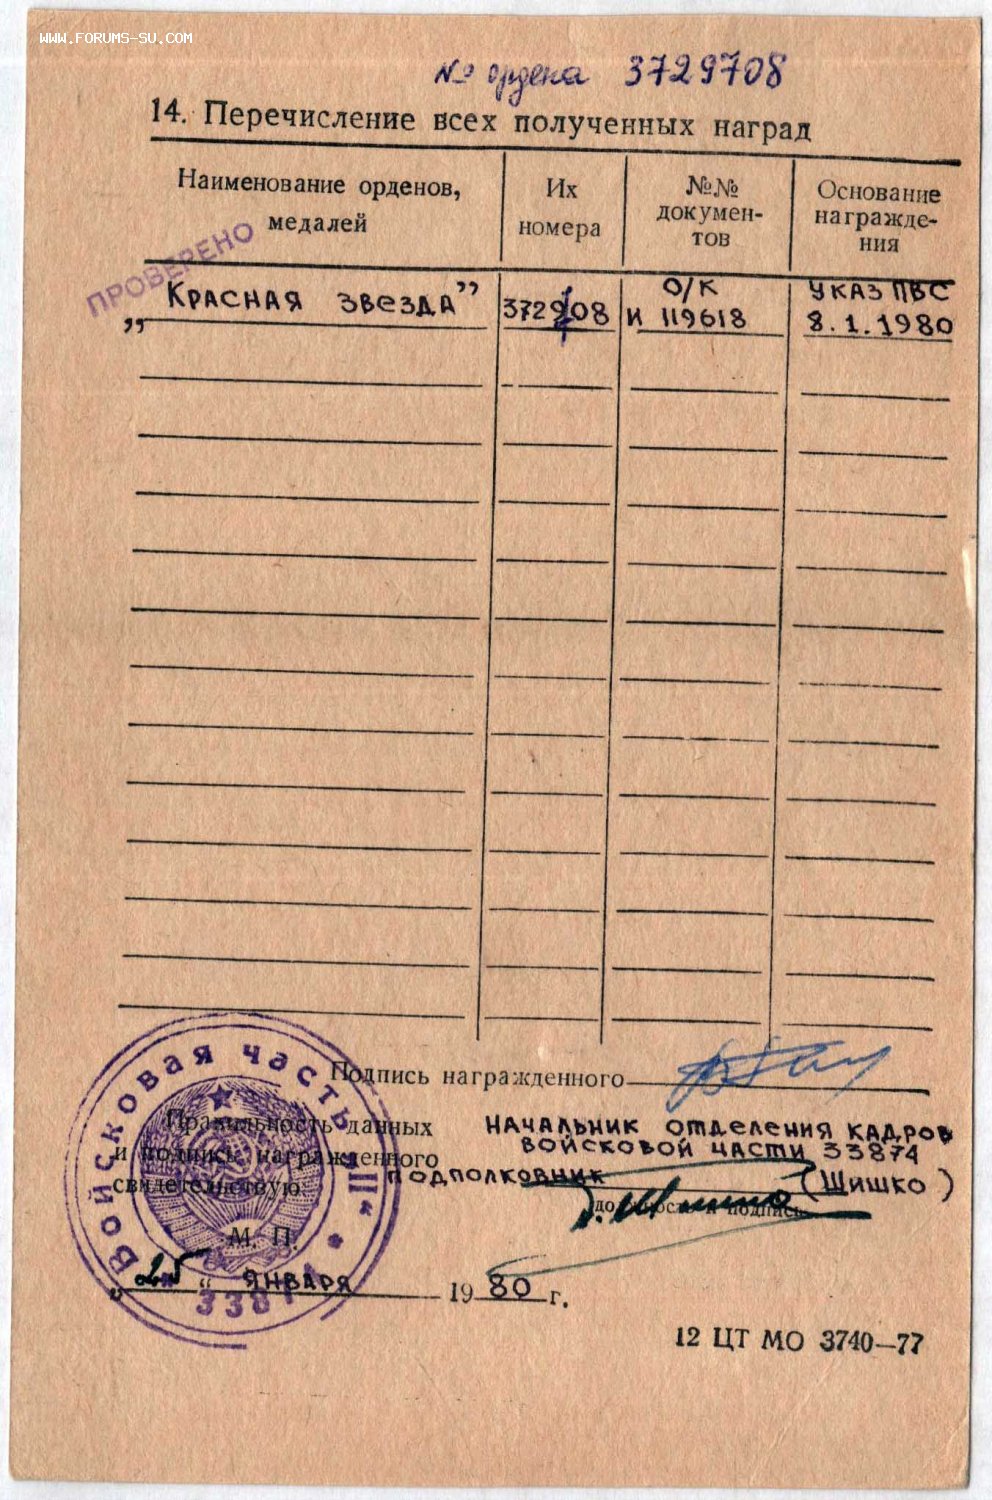 WWW.FORUMS-SU.COM
№ ордена 3729708
14. Перечисление всех полученных наград
Наименование орденов, медалей
Их номера
№№ докумен-
тов
Основание
награжде-
ния
ПРОВЕРЕНО
„КРАСНАЯ ЗВЕЗДА”
372908
О/К
И 119618
УКАЗ ПВС
8.1.1980
Подпись награжденного
Правильность данных
и подпись награжденного
свидетельствую:
НАЧАЛЬНИК ОТДЕЛЕНИЯ КАДРОВ
ВОЙСКОВОЙ ЧАСТИ 33874
ПОДПОЛКОВНИК (ШИШКО)
должность и подпись
М. П.
„25“ ЯНВАРЯ 1980 г.
Войсковая часть „II“
12 ЦТ МО 3740—77